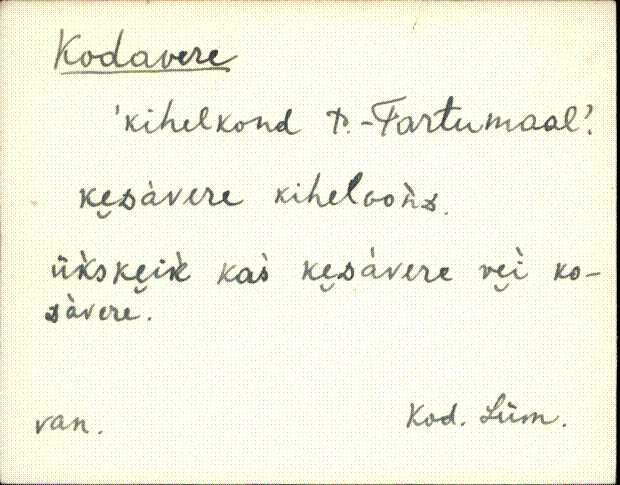 Kodavere
'kihelkond P.-Tartumaal'.
ke̮sàvere kiheloòns.
ük̀ske̮ik̀ kas̀ ke̮sàvere ve̮ì ko-
sàvere.
van. Kod. Lüm.